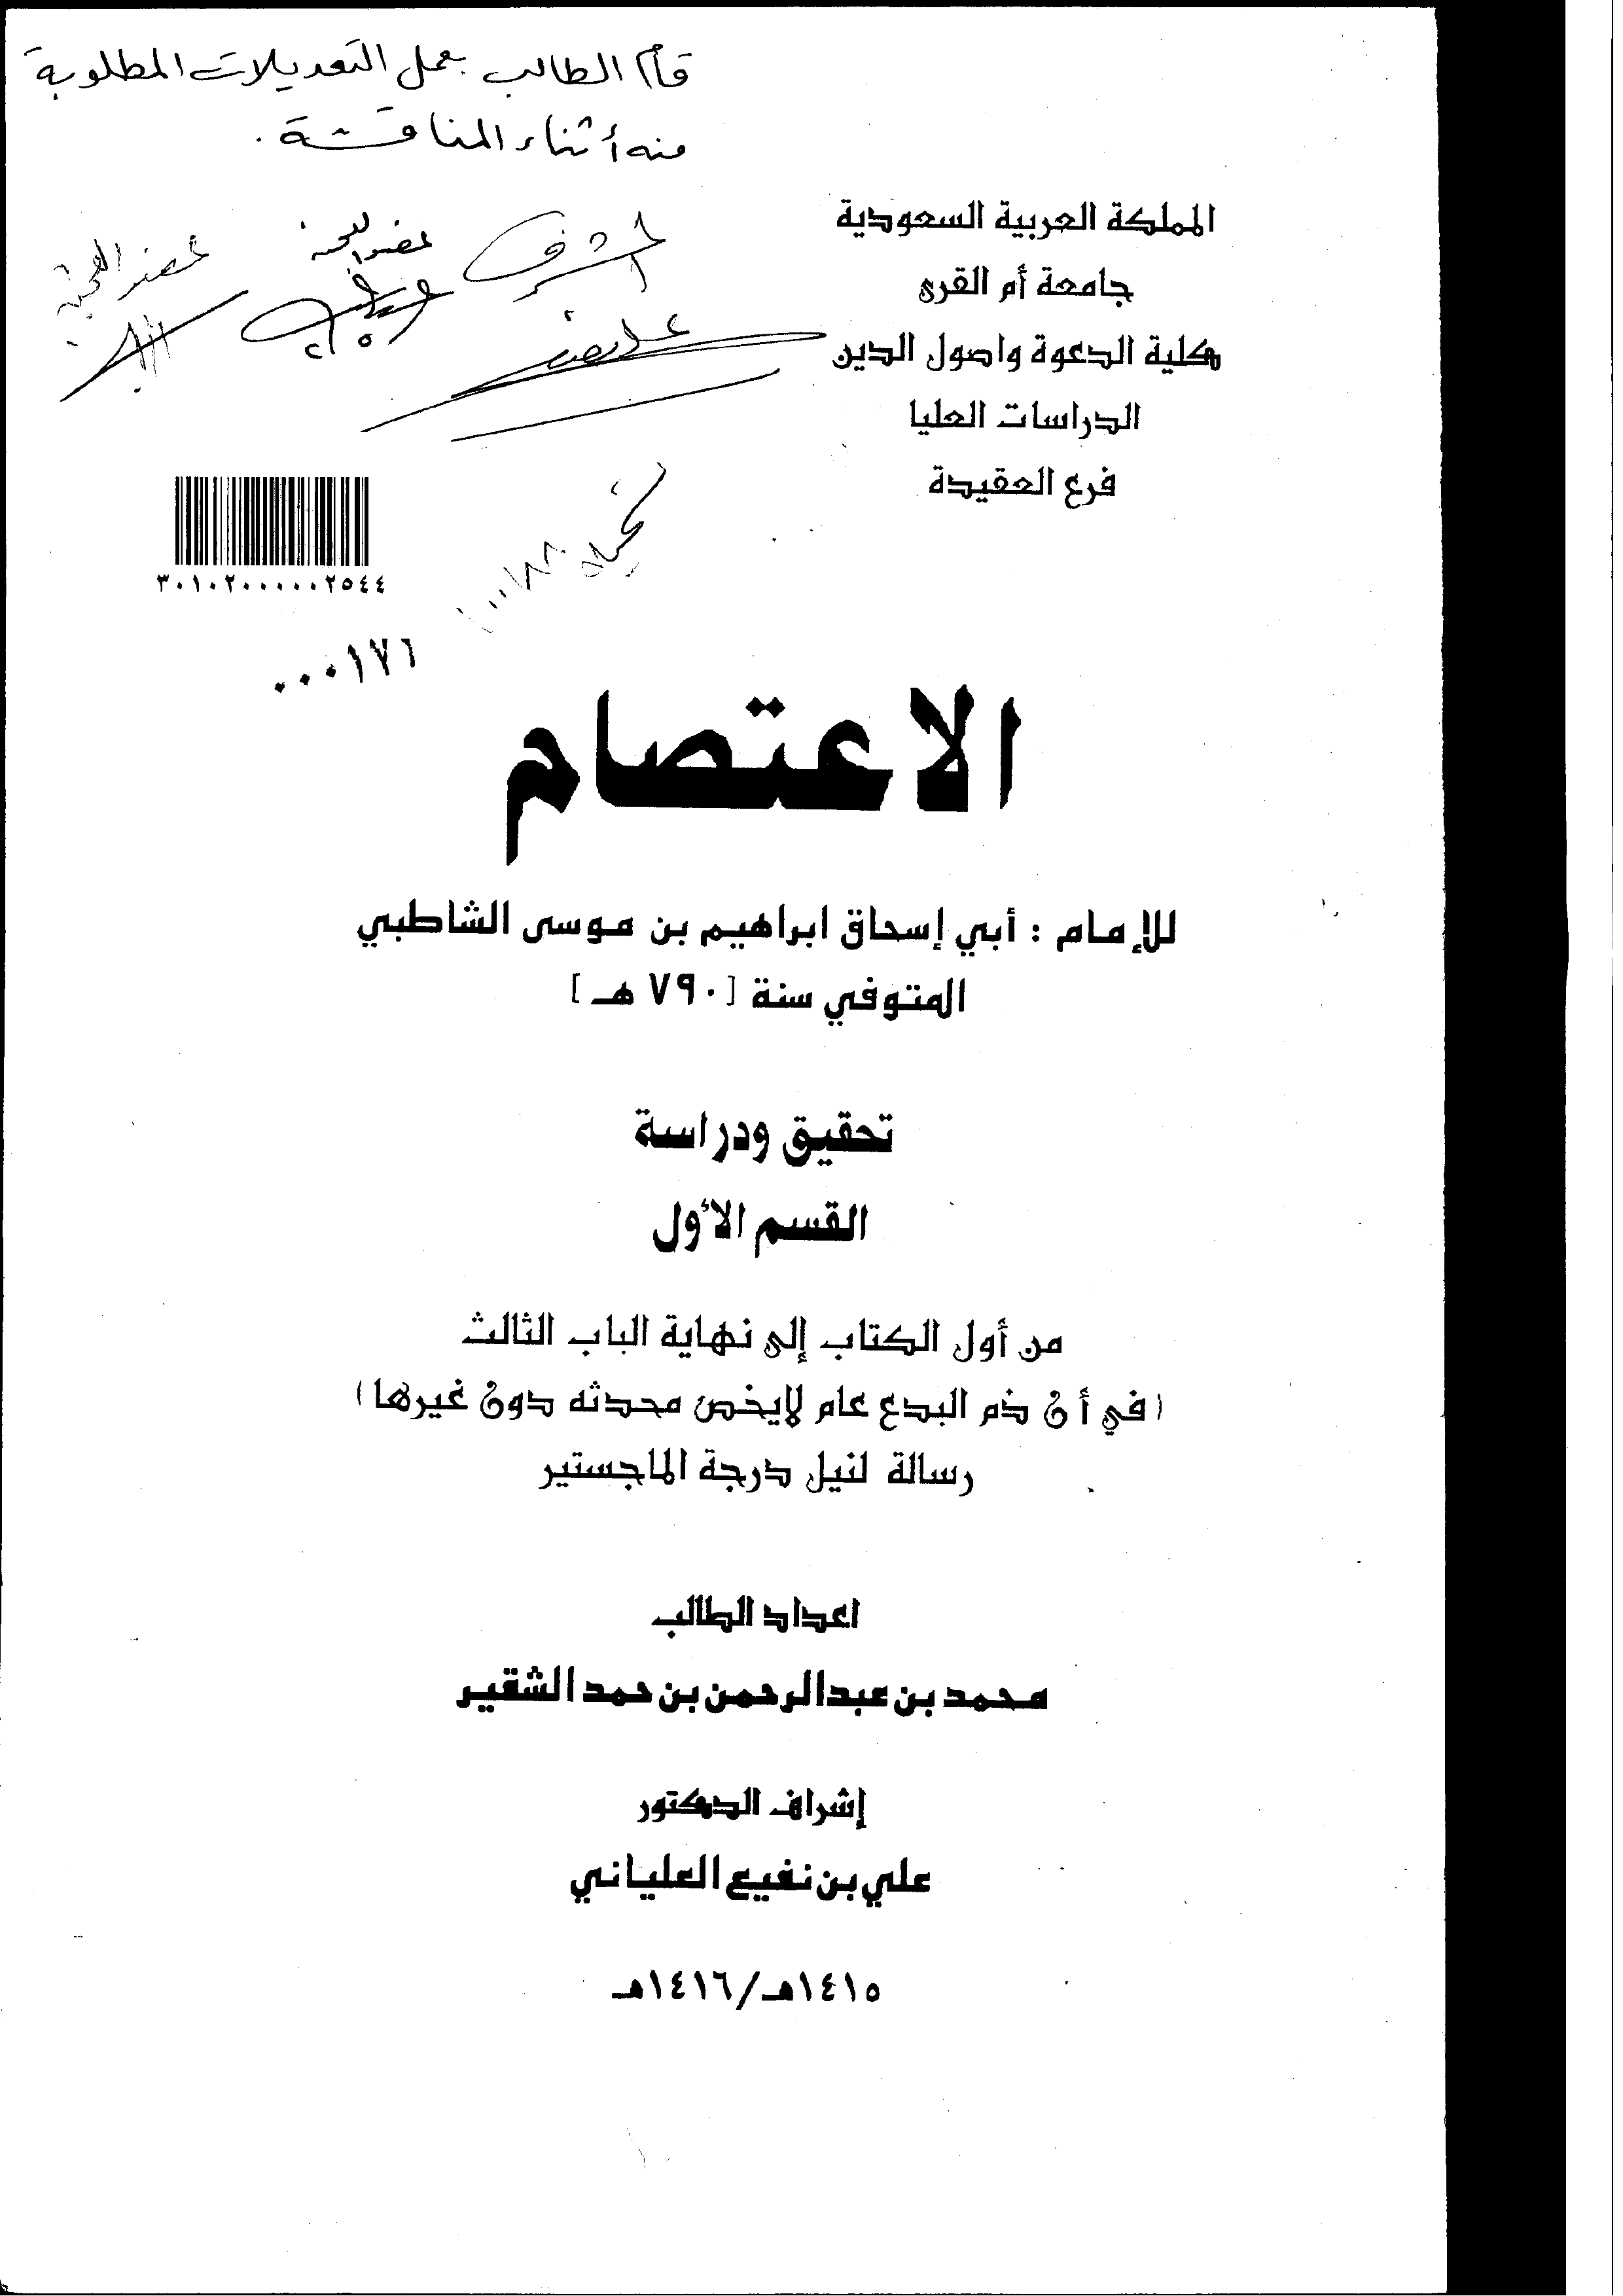 قام الطالب بعمل التعديلات المطلوبة
منه أثناء المناقشة .
المشرف
عضو اللجنة
عضو اللجنة
المملكة العربية السعودية
جامعة أم القرى
كلية الدعوة واصول الدين
الدراسات العليا
فرع العقيدة
٣٠١٠٢٠٠٠٠٠٢٥٤٤
٠٠٠١٧٦
الاعتصام
للإمام : أبي إسحاق ابراهيم بن موسى الشاطبي
المتوفي سنة [٧٩٠ هـ]
تحقيق ودراسة
القسم الأول
من أول الكتاب إلى نهاية الباب الثالث
(في أن ذم البدع عام لايخص محدثه دون غيرها)
رسالة لنيل درجة الماجستير
اعداد الطالب
محمد بن عبدالرحمن بن حمد الشقير
إشراف الدكتور
علي بن نفيع العلياني
١٤١٥هـ/١٤١٦هـ